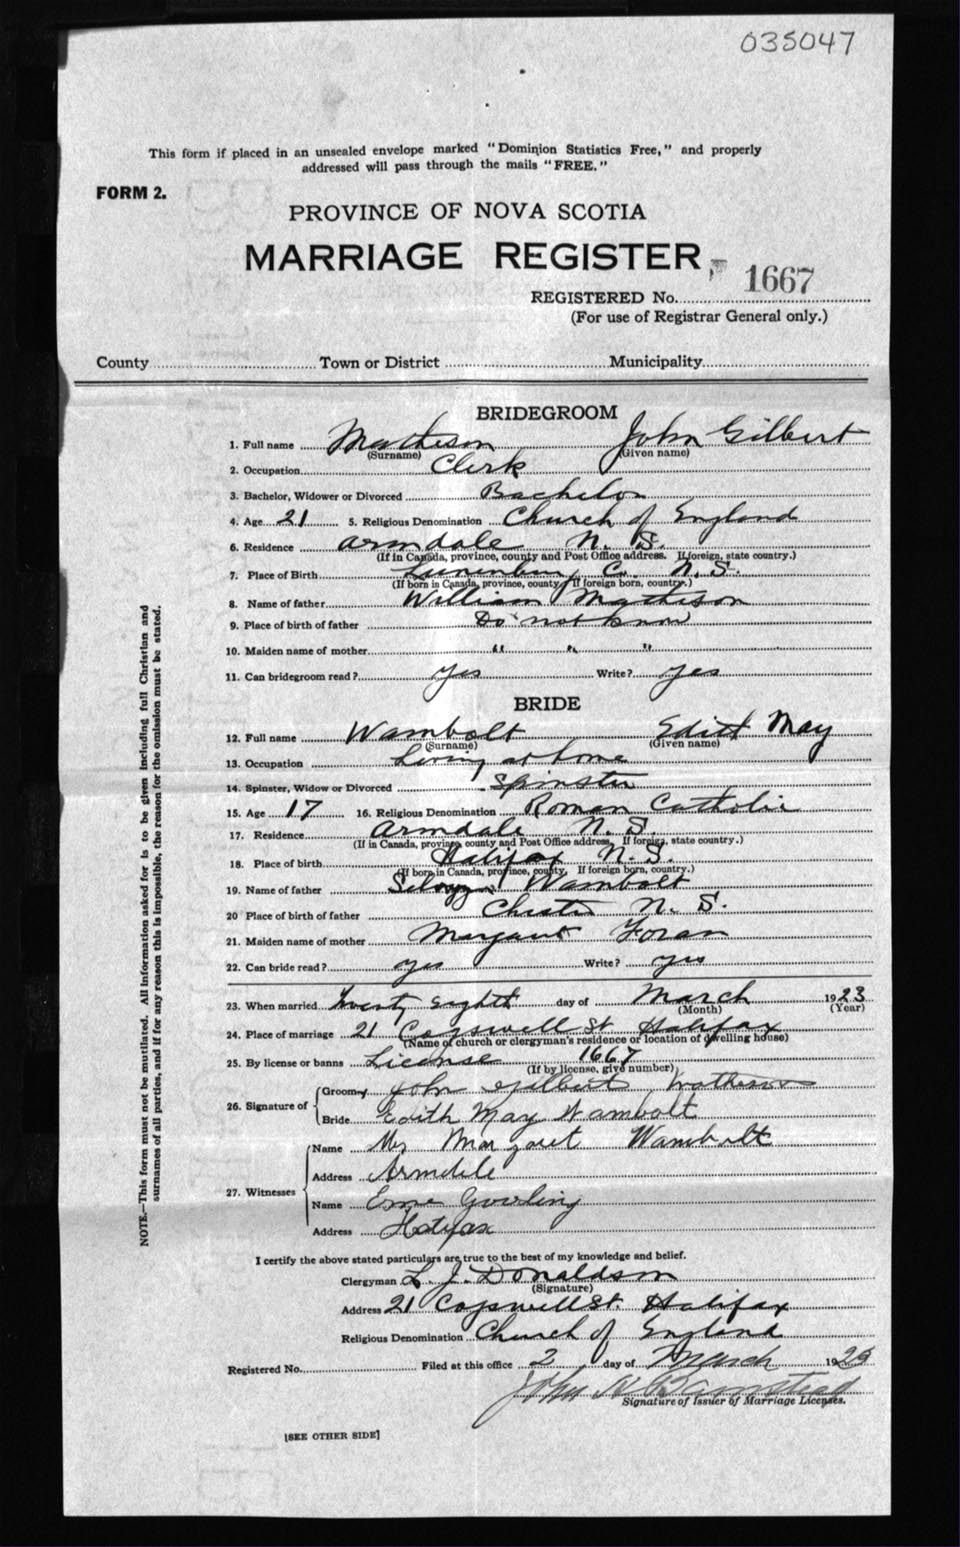 035047
This form if placed in an unsealed envelope marked "Dominion Statistics Free," and properly
addressed will pass through the mails "FREE."
FORM 2.
PROVINCE OF NOVA SCOTIA
MARRIAGE REGISTER
REGISTERED No. 1667
(For use of Registrar General only.)
County Town or District Municipality
BRIDEGROOM
1. Full name Matheson John Gilbert
(Surname) (Given name)
2. Occupation Clerk
3. Bachelor, Widower or Divorced Bachelor
4. Age 21 5. Religious Denomination Church of England
6. Residence Armdale N. S.
(If in Canada, province, county and Post Office address. If foreign, state country.)
7. Place of Birth Lunenburg Co. N. S.
(If born in Canada, province, county. If foreign born, country.)
8. Name of father William Matheson
9. Place of birth of father Do not know
10. Maiden name of mother " " "
11. Can bridegroom read? yes Write? yes
BRIDE
12. Full name Wambolt Edith May
(Surname) (Given name)
13. Occupation Living at home
14. Spinster, Widow or Divorced Spinster
15. Age 17 16. Religious Denomination Roman Catholic
17. Residence Armdale N. S.
(If in Canada, province, county and Post Office address, If foreign, state country.)
18. Place of birth Halifax N. S.
(If born in Canada, province, county, If foreign born, country.)
19. Name of father Wambolt
20 Place of birth of father Chester N. S.
21. Maiden name of mother Margaret Foran
22. Can bride read? yes Write? yes
23. When married Twenty eighth day of March 1923
(Month) (Year)
24. Place of marriage 21 Cogswell St Halifax
(Name of church or clergyman's residence or location of dwelling house)
25. By license or banns License 1667
(If by license, give number)
26. Signature of
Groom John Gilbert Matheson
Bride Edith May Wambolt
27. Witnesses
Name Mrs Margaret Wambolt
Address Armdale
Name Gowling
Address Halifax
I certify the above stated particulars are true to the best of my knowledge and belief.
Clergyman L. J. Donaldson
(Signature)
Address 21 Cogswell St. Halifax
Religious Denomination Church of England
Registered No. Filed at this office 2 day of March 1923
John
Signature of Issuer of Marriage Licenses.
[SEE OTHER SIDE]
NOTE.—This form must not be mutilated. All information asked for is to be given including full Christian and
surnames of all parties, and if for any reason this is impossible, the reason for the omission must be stated.